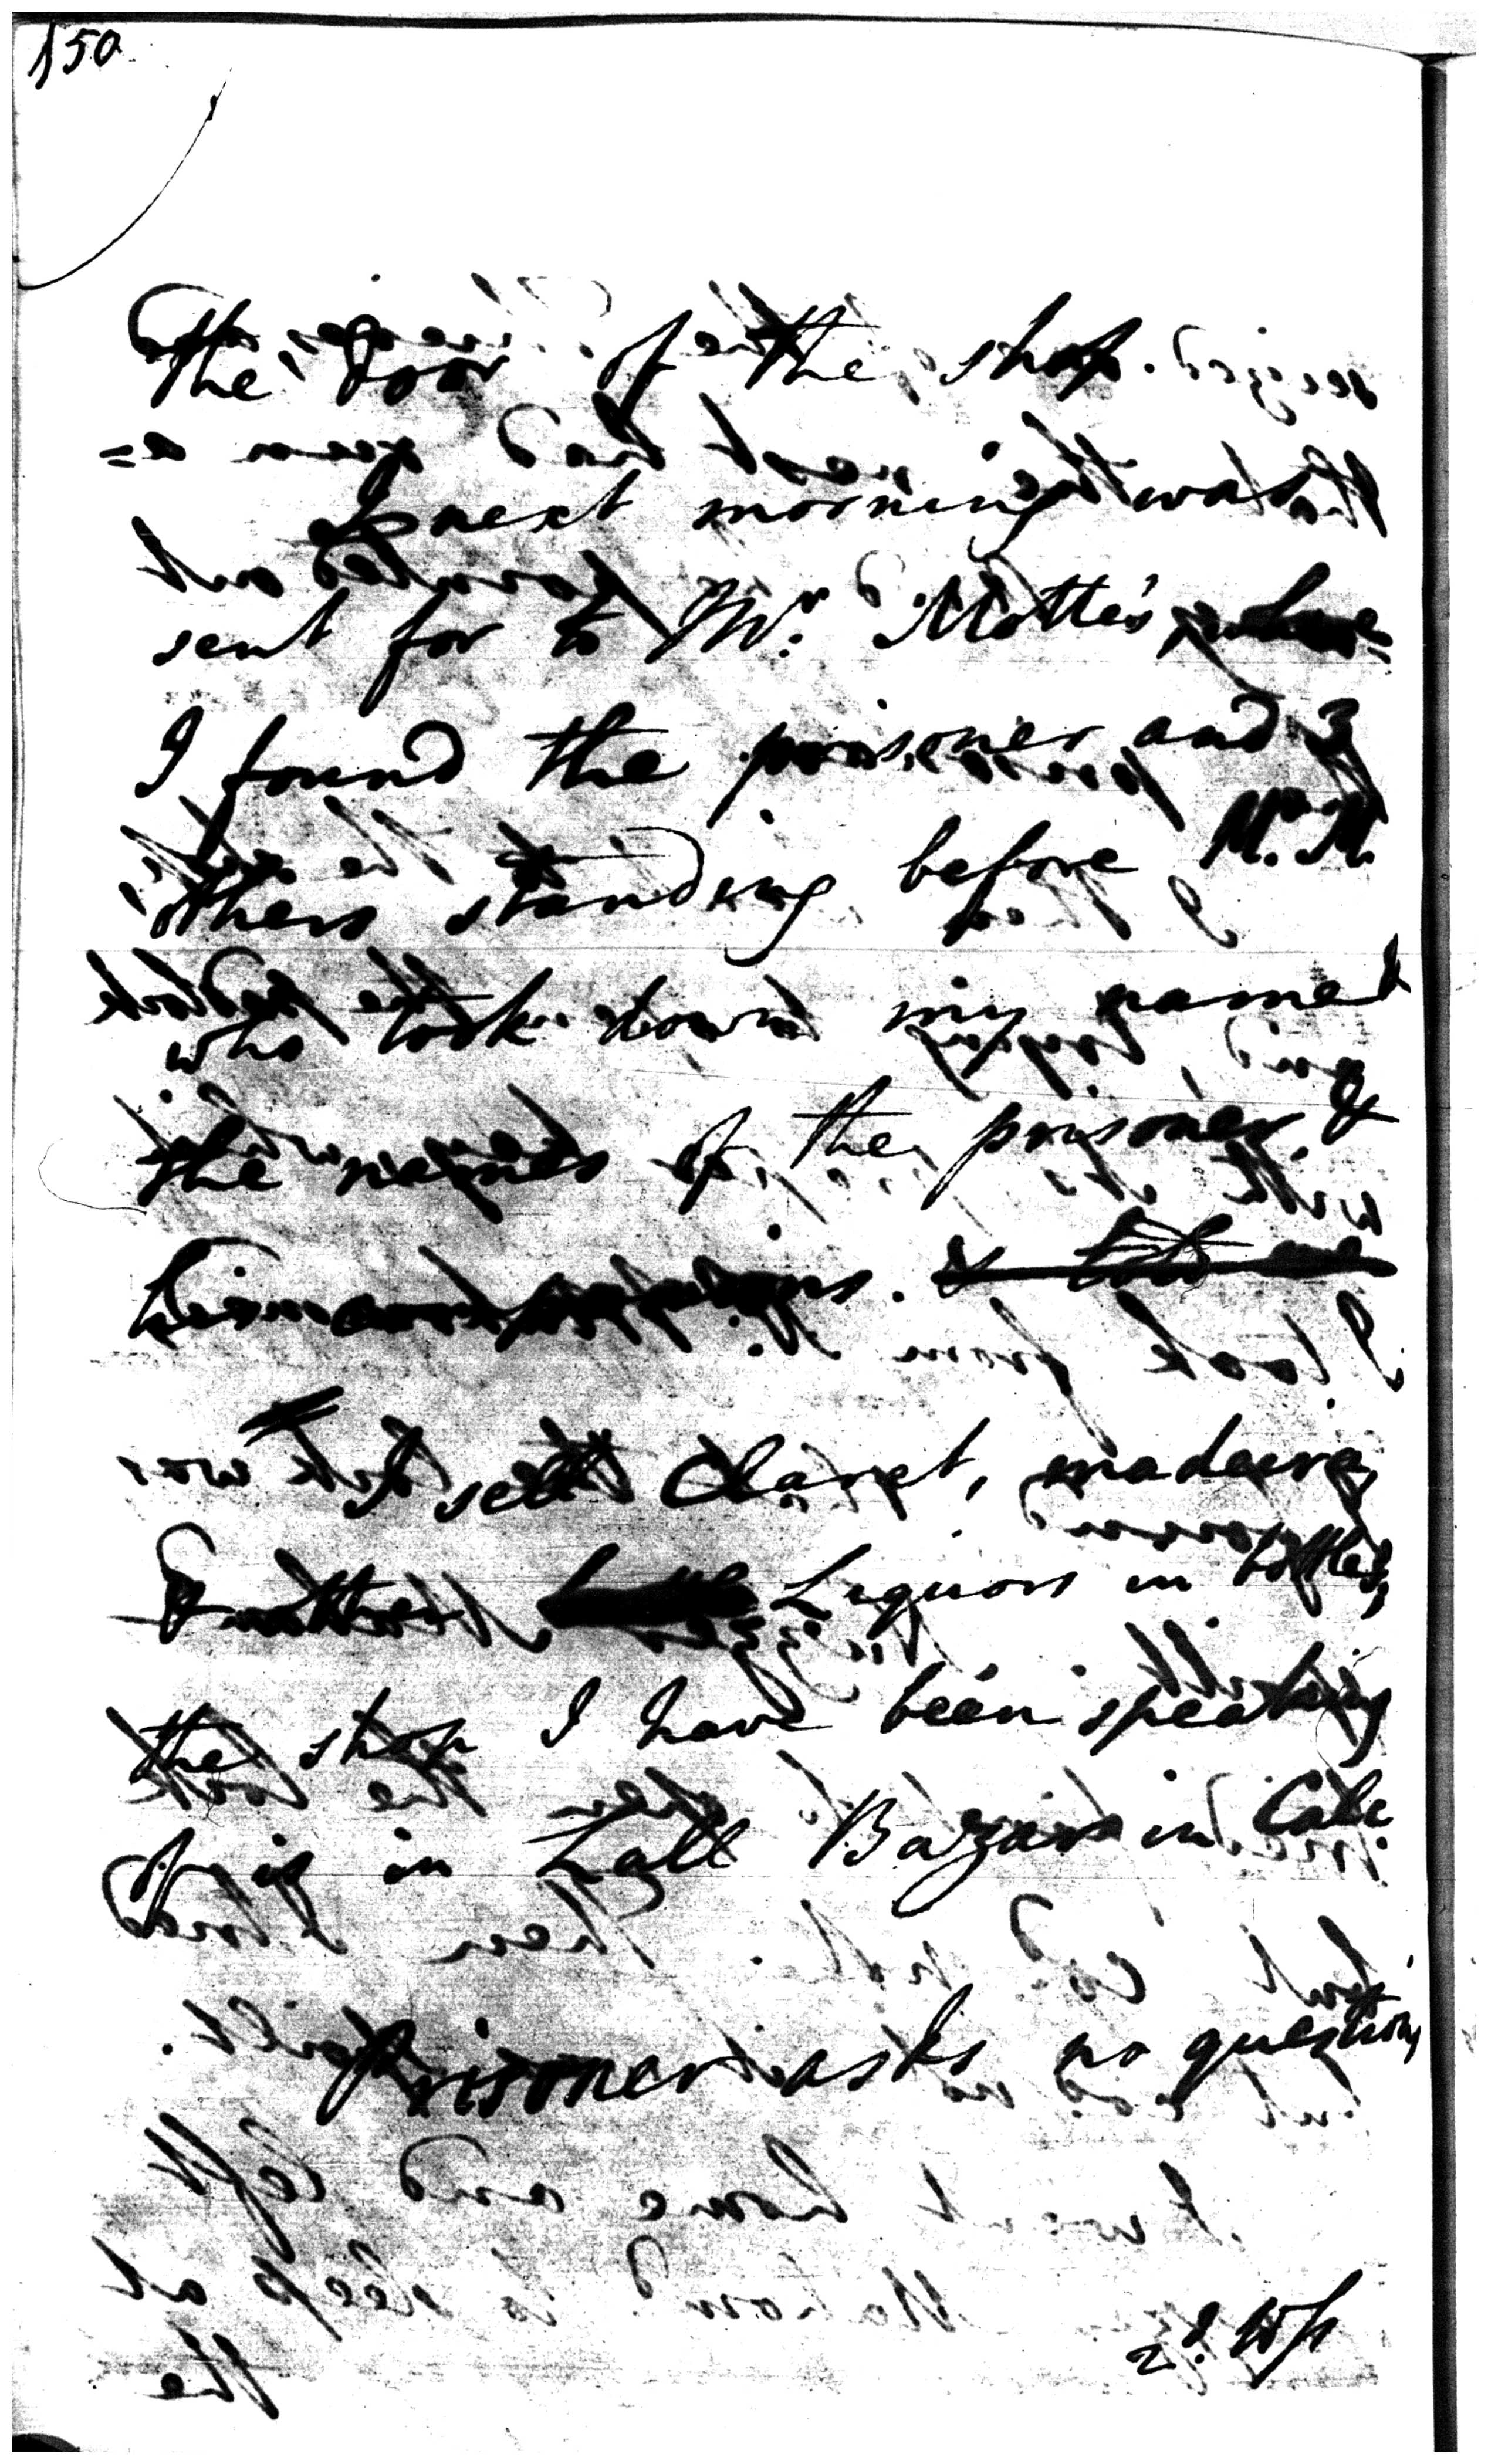 150
the door of the shop.
I next morning was
sent for to Mr. Motte's
I found the prisoner and 3
others standing before Mr. M.
who took down my name &
the names of the prisoner &
. & told me
I sell Claret, madeira,
& other Liquors in bottles,
the shop I have been speaking
of is in Lall Bazar in Calc
Prisoner asks no questions
2d. Ws